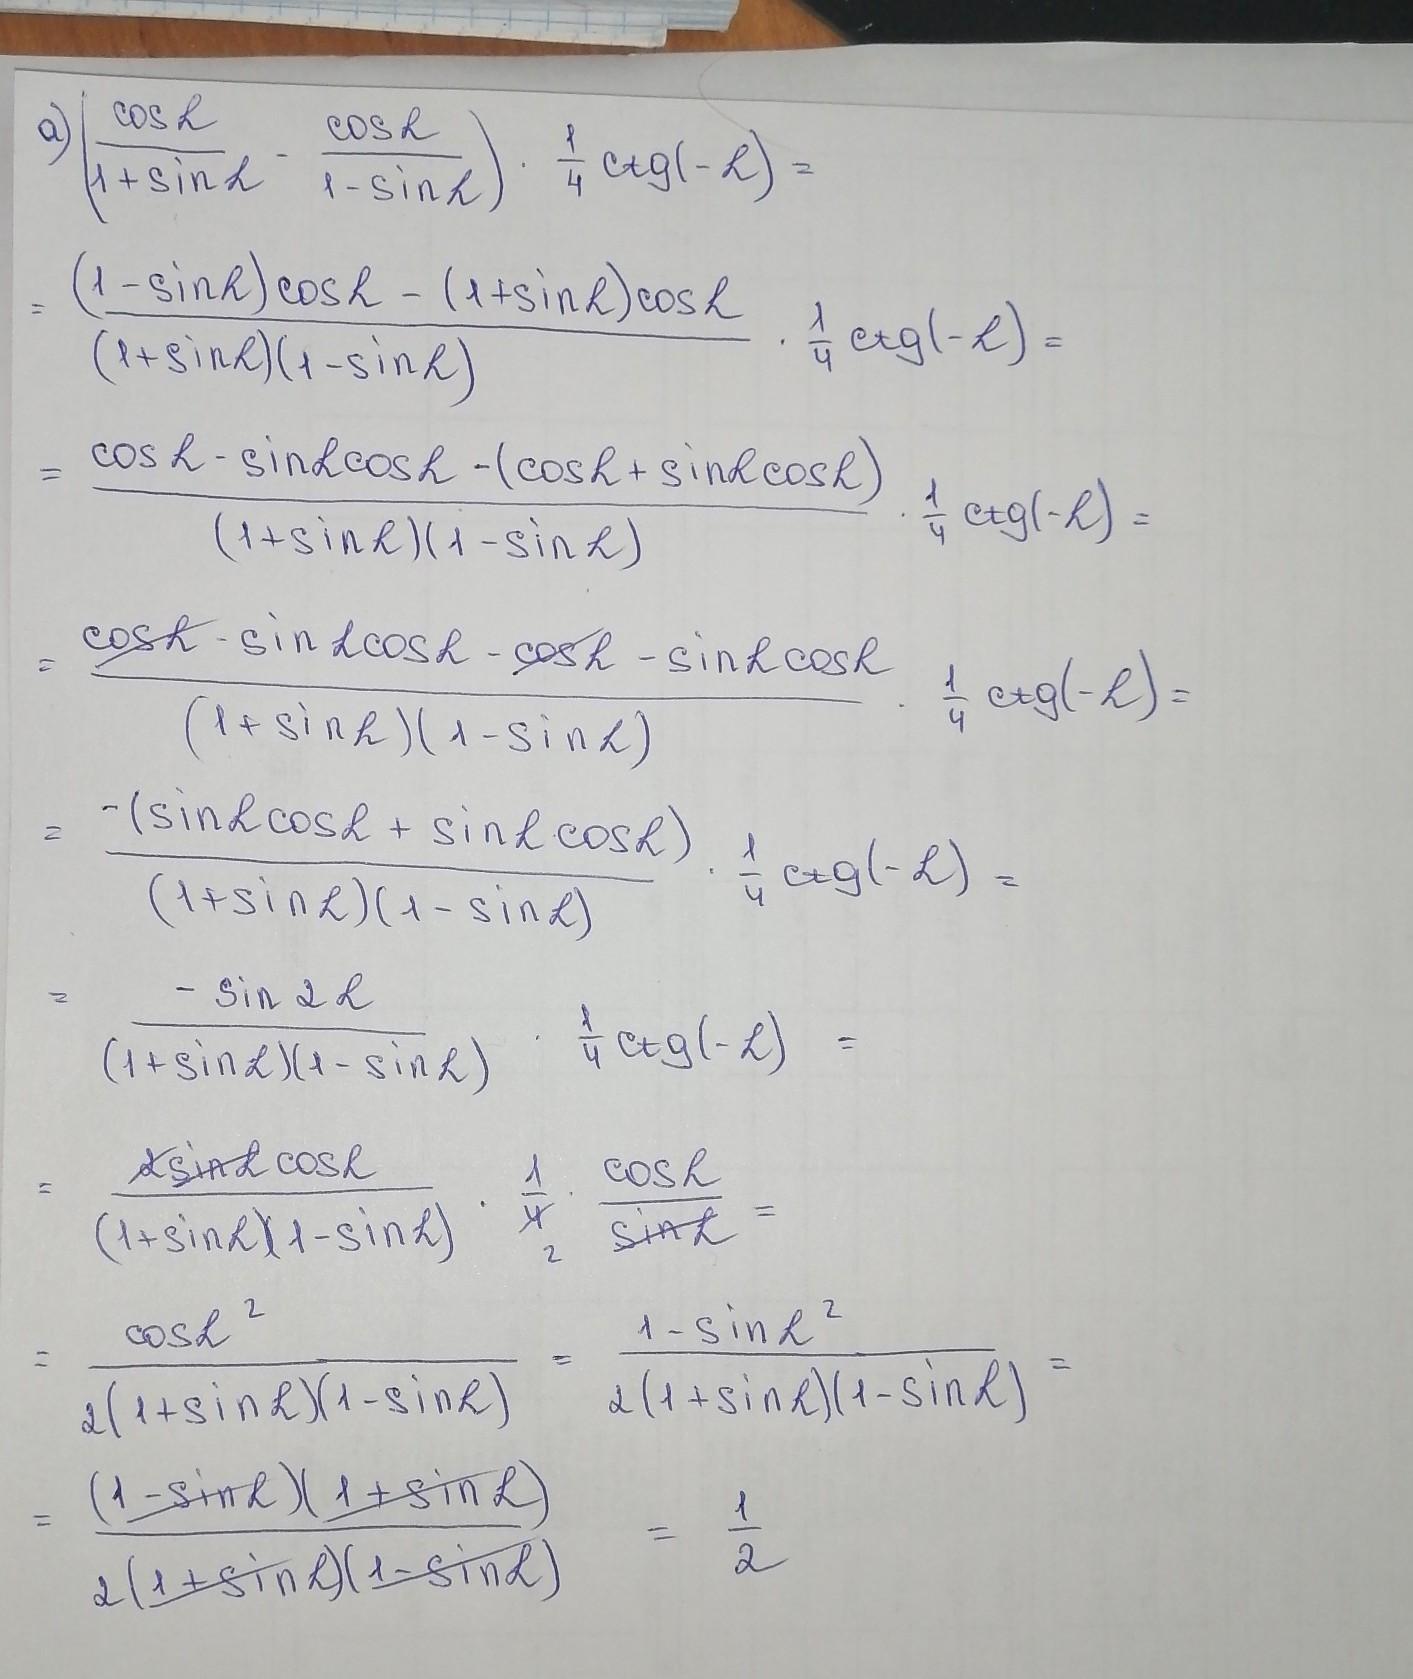 а) (cos α / (1 + sin α) - cos α / (1 - sin α)) · 1/4 ctg(-α) =
= ((1 - sin α) cos α - (1 + sin α) cos α) / ((1 + sin α)(1 - sin α)) · 1/4 ctg(-α) =
= (cos α - sin α cos α - (cos α + sin α cos α)) / ((1 + sin α)(1 - sin α)) · 1/4 ctg(-α) =
= (cos α - sin α cos α - cos α - sin α cos α) / ((1 + sin α)(1 - sin α)) · 1/4 ctg(-α) =
= -(sin α cos α + sin α cos α) / ((1 + sin α)(1 - sin α)) · 1/4 ctg(-α) =
= - sin 2α / ((1 + sin α)(1 - sin α)) · 1/4 ctg(-α) =
= 2 sin α cos α / ((1 + sin α)(1 - sin α)) · 1/4 2 · cos α / sin α =
= cos α² / (2(1 + sin α)(1 - sin α)) = (1 - sin α²) / (2(1 + sin α)(1 - sin α)) =
= (1 - sin α)(1 + sin α) / (2(1 + sin α)(1 - sin α)) = 1/2